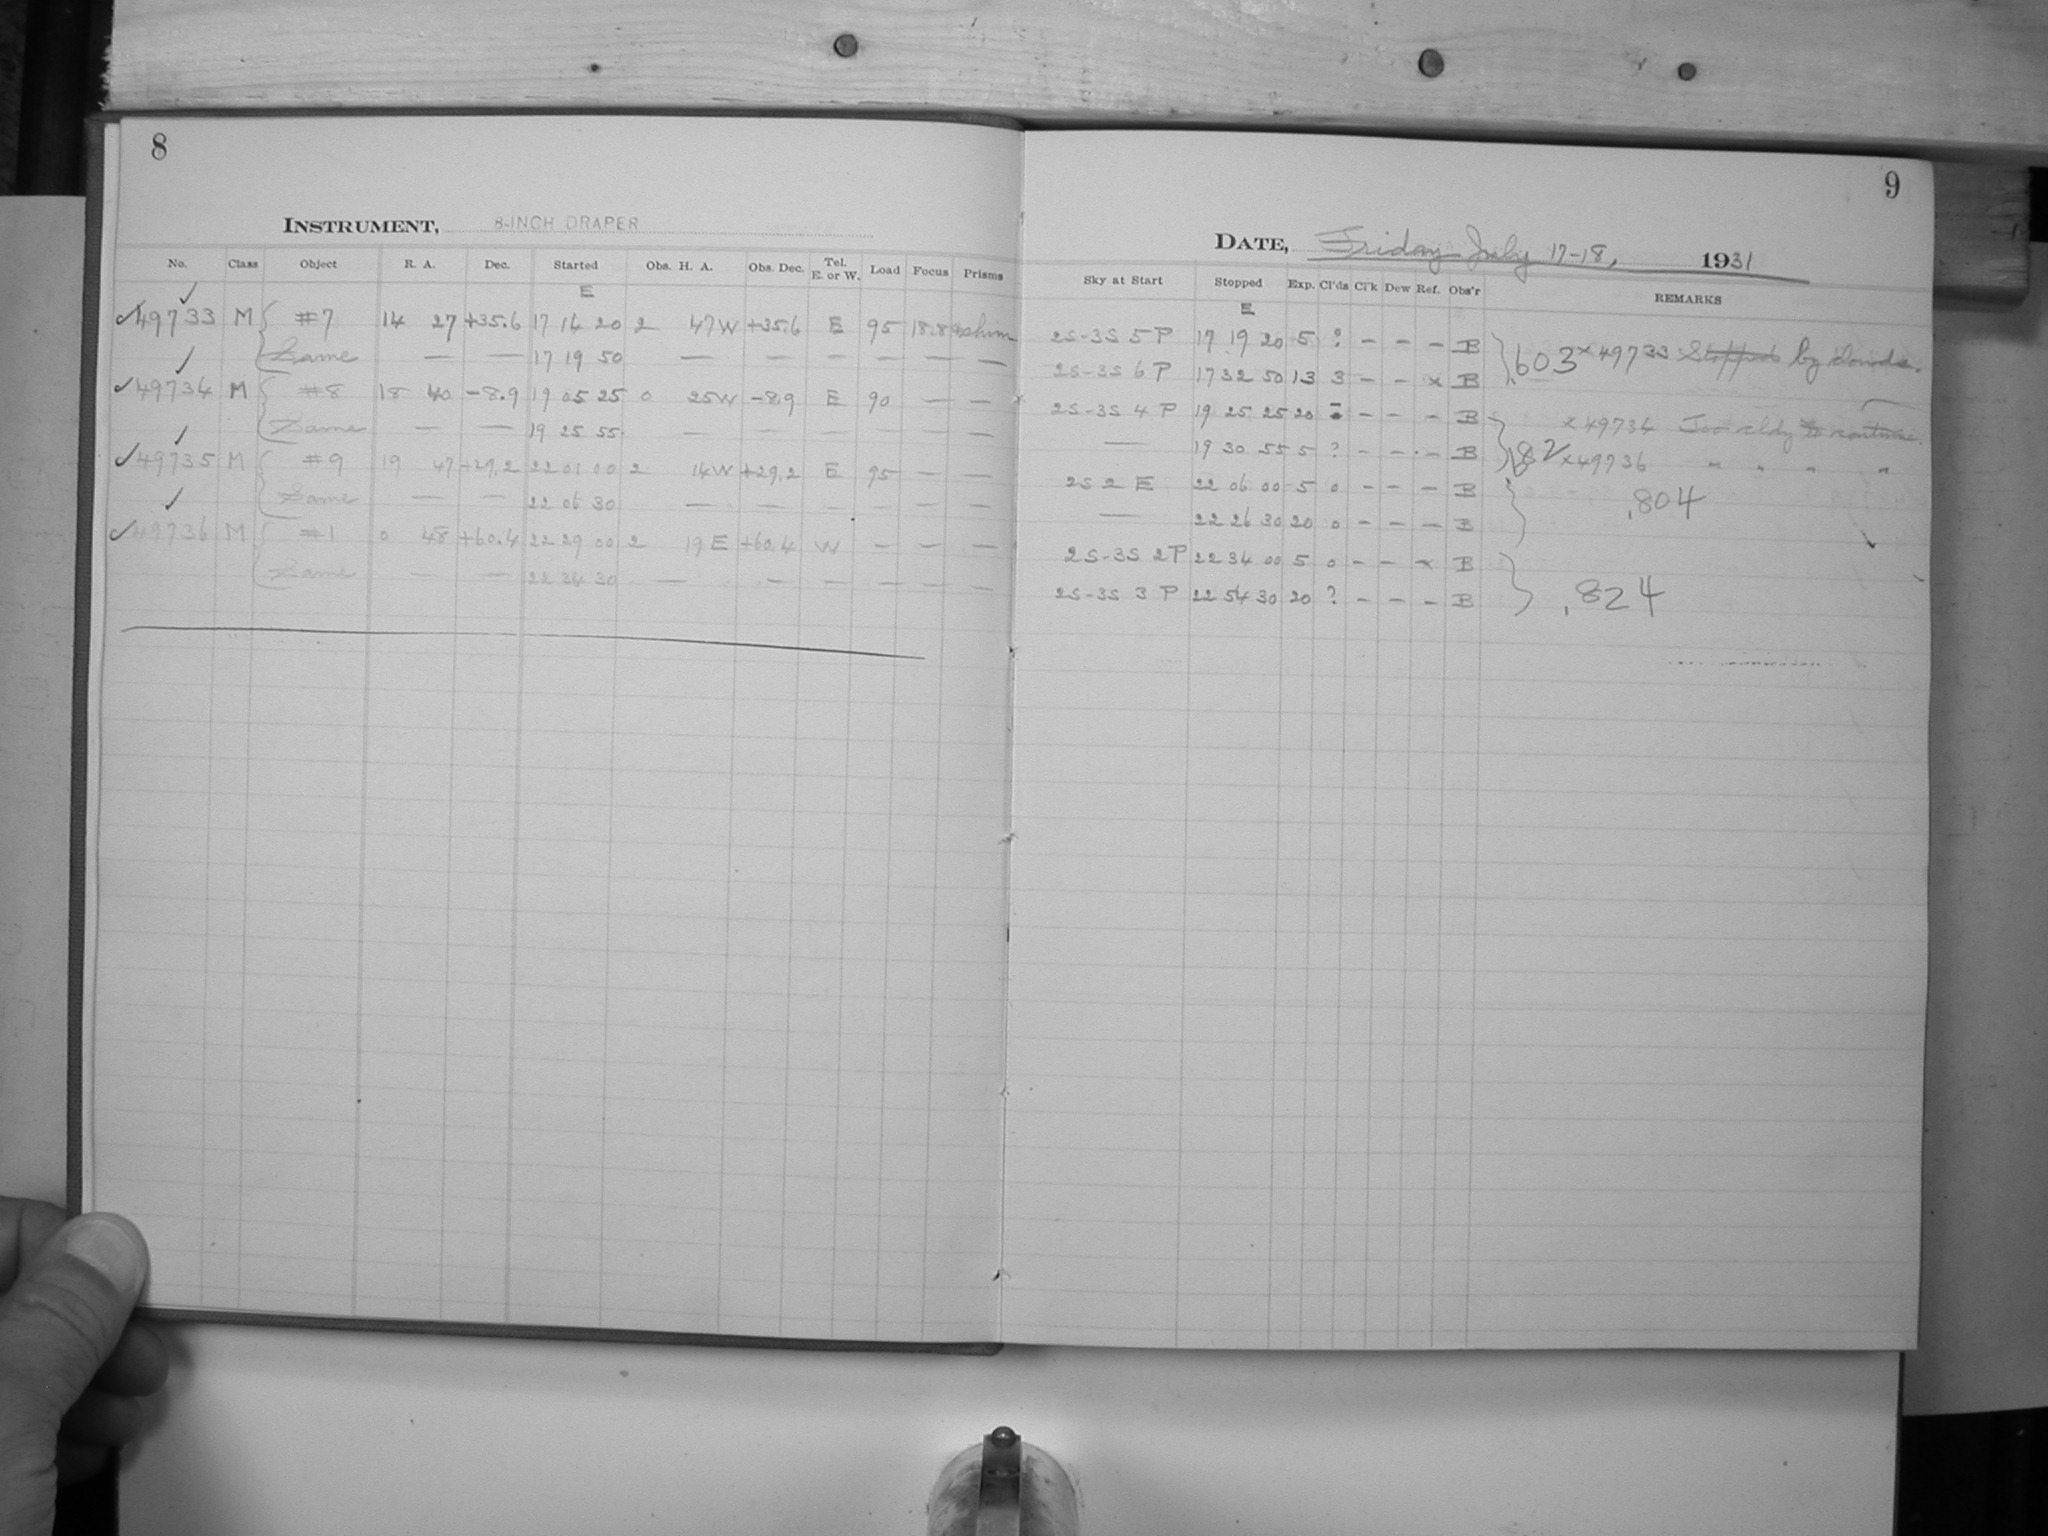 8
INSTRUMENT, 8-INCH DRAPER
No. Class Object R. A. Dec. Started Obs. H. A. Obs. Dec. Tel. E. or W. Load Focus Prisms
E
✓49733 M #7 14 27 +35.6 17 14 20 2 47W +35.6 E 95 18.8
Same — — 17 19 50 — — — — — —
✓49734 M #8 18 40 -8.9 19 05 25 0 25W -8.9 E 90 — —
Same — — 19 25 55 — — — — — —
✓49735 M #9 19 47 +29.2 22 01 00 2 14W +29.2 E 95 — —
Same — — 22 06 30 — — — — — —
✓49736 M #1 0 48 +60.4 22 29 00 2 19E +60.4 W — — —
Same — — 22 34 30 — — — — — —
9
DATE, Friday July 17-18, 1931
Sky at Start Stopped Exp. Cl'ds Cl'k Dew Ref. Obs'r REMARKS
E
2S-3S 5 P 17 19 20 5 ? - - - B
2S-3S 6 P 17 32 50 13 3 - - x B .603 x49733 Stopped by clouds.
2S-3S 4 P 19 25 25 20 - - - B x49734 Too cldy to continue.
— 19 30 55 5 ? - - - B .82 x49736 " " " "
2S 2 E 22 06 00 5 0 - - - B .804
— 22 26 30 20 0 - - - B
2S-3S 2P 22 34 00 5 0 - - x B
2S-3S 3 P 22 54 30 20 ? - - - B .824